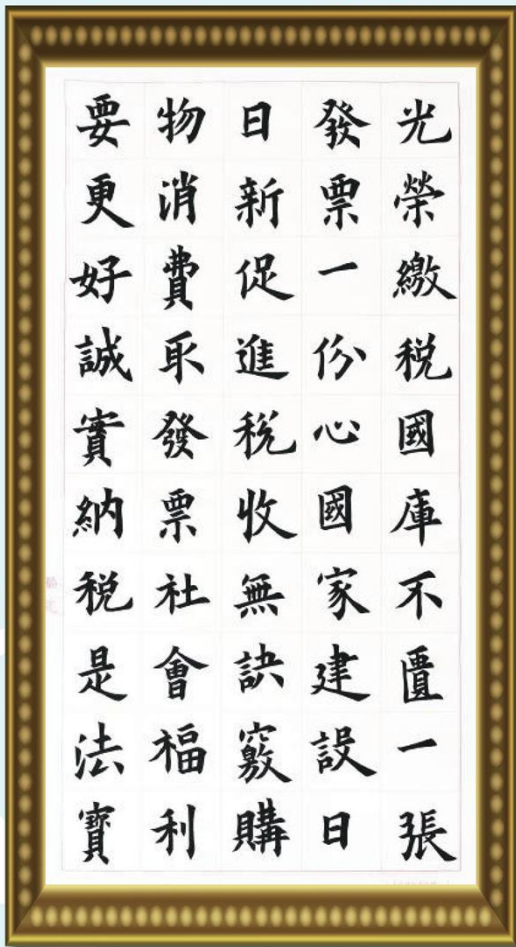 光榮繳税國庫不匱一張
發票一份心國家建設日
日新促進税收無訣竅購
物消費取發票社會福利
要更好誠實納税是法寶